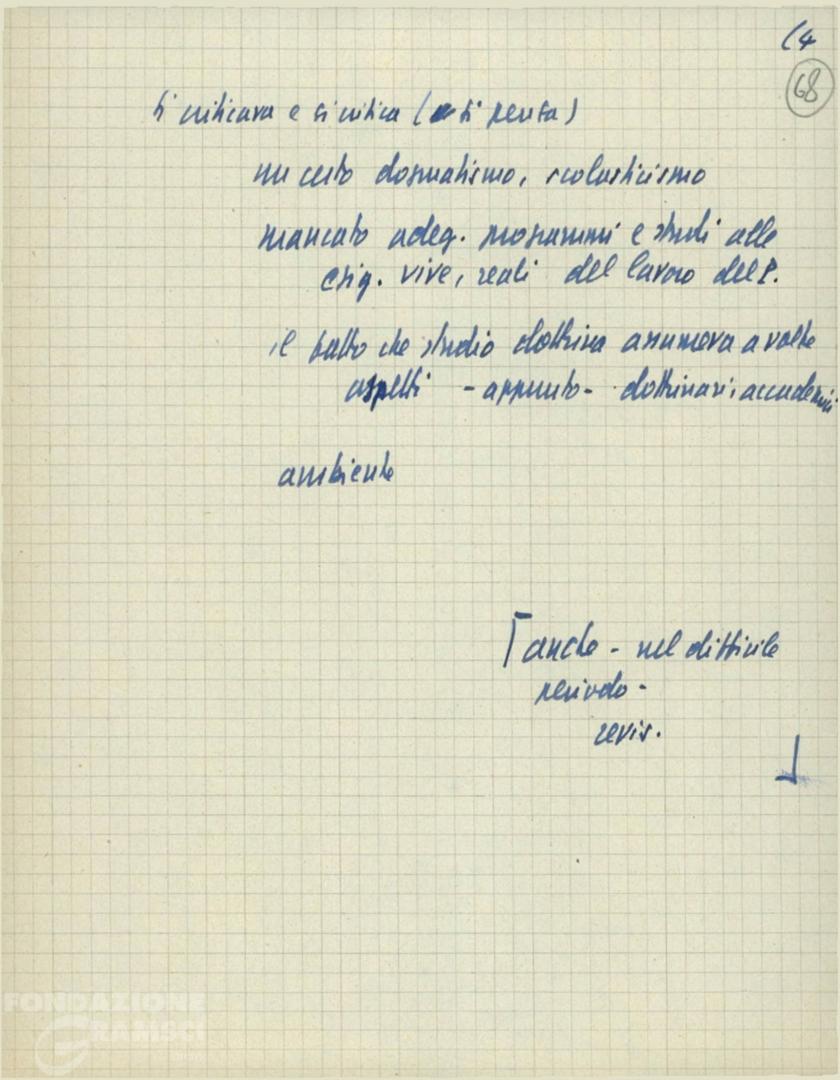 (4
68
si criticava e si critica (si pensa)
un certo dogmatismo, scolasticismo
mancato adeg. programmi e studi alle
esig. vive, reali del lavoro del P.
il fatto che studio dottrina assumeva a volte
aspetti - appunto - dottrinari, accademici
ambiente
anche - nel difficile
periodo -
revis.
FONDAZIONE
GRAMSCI